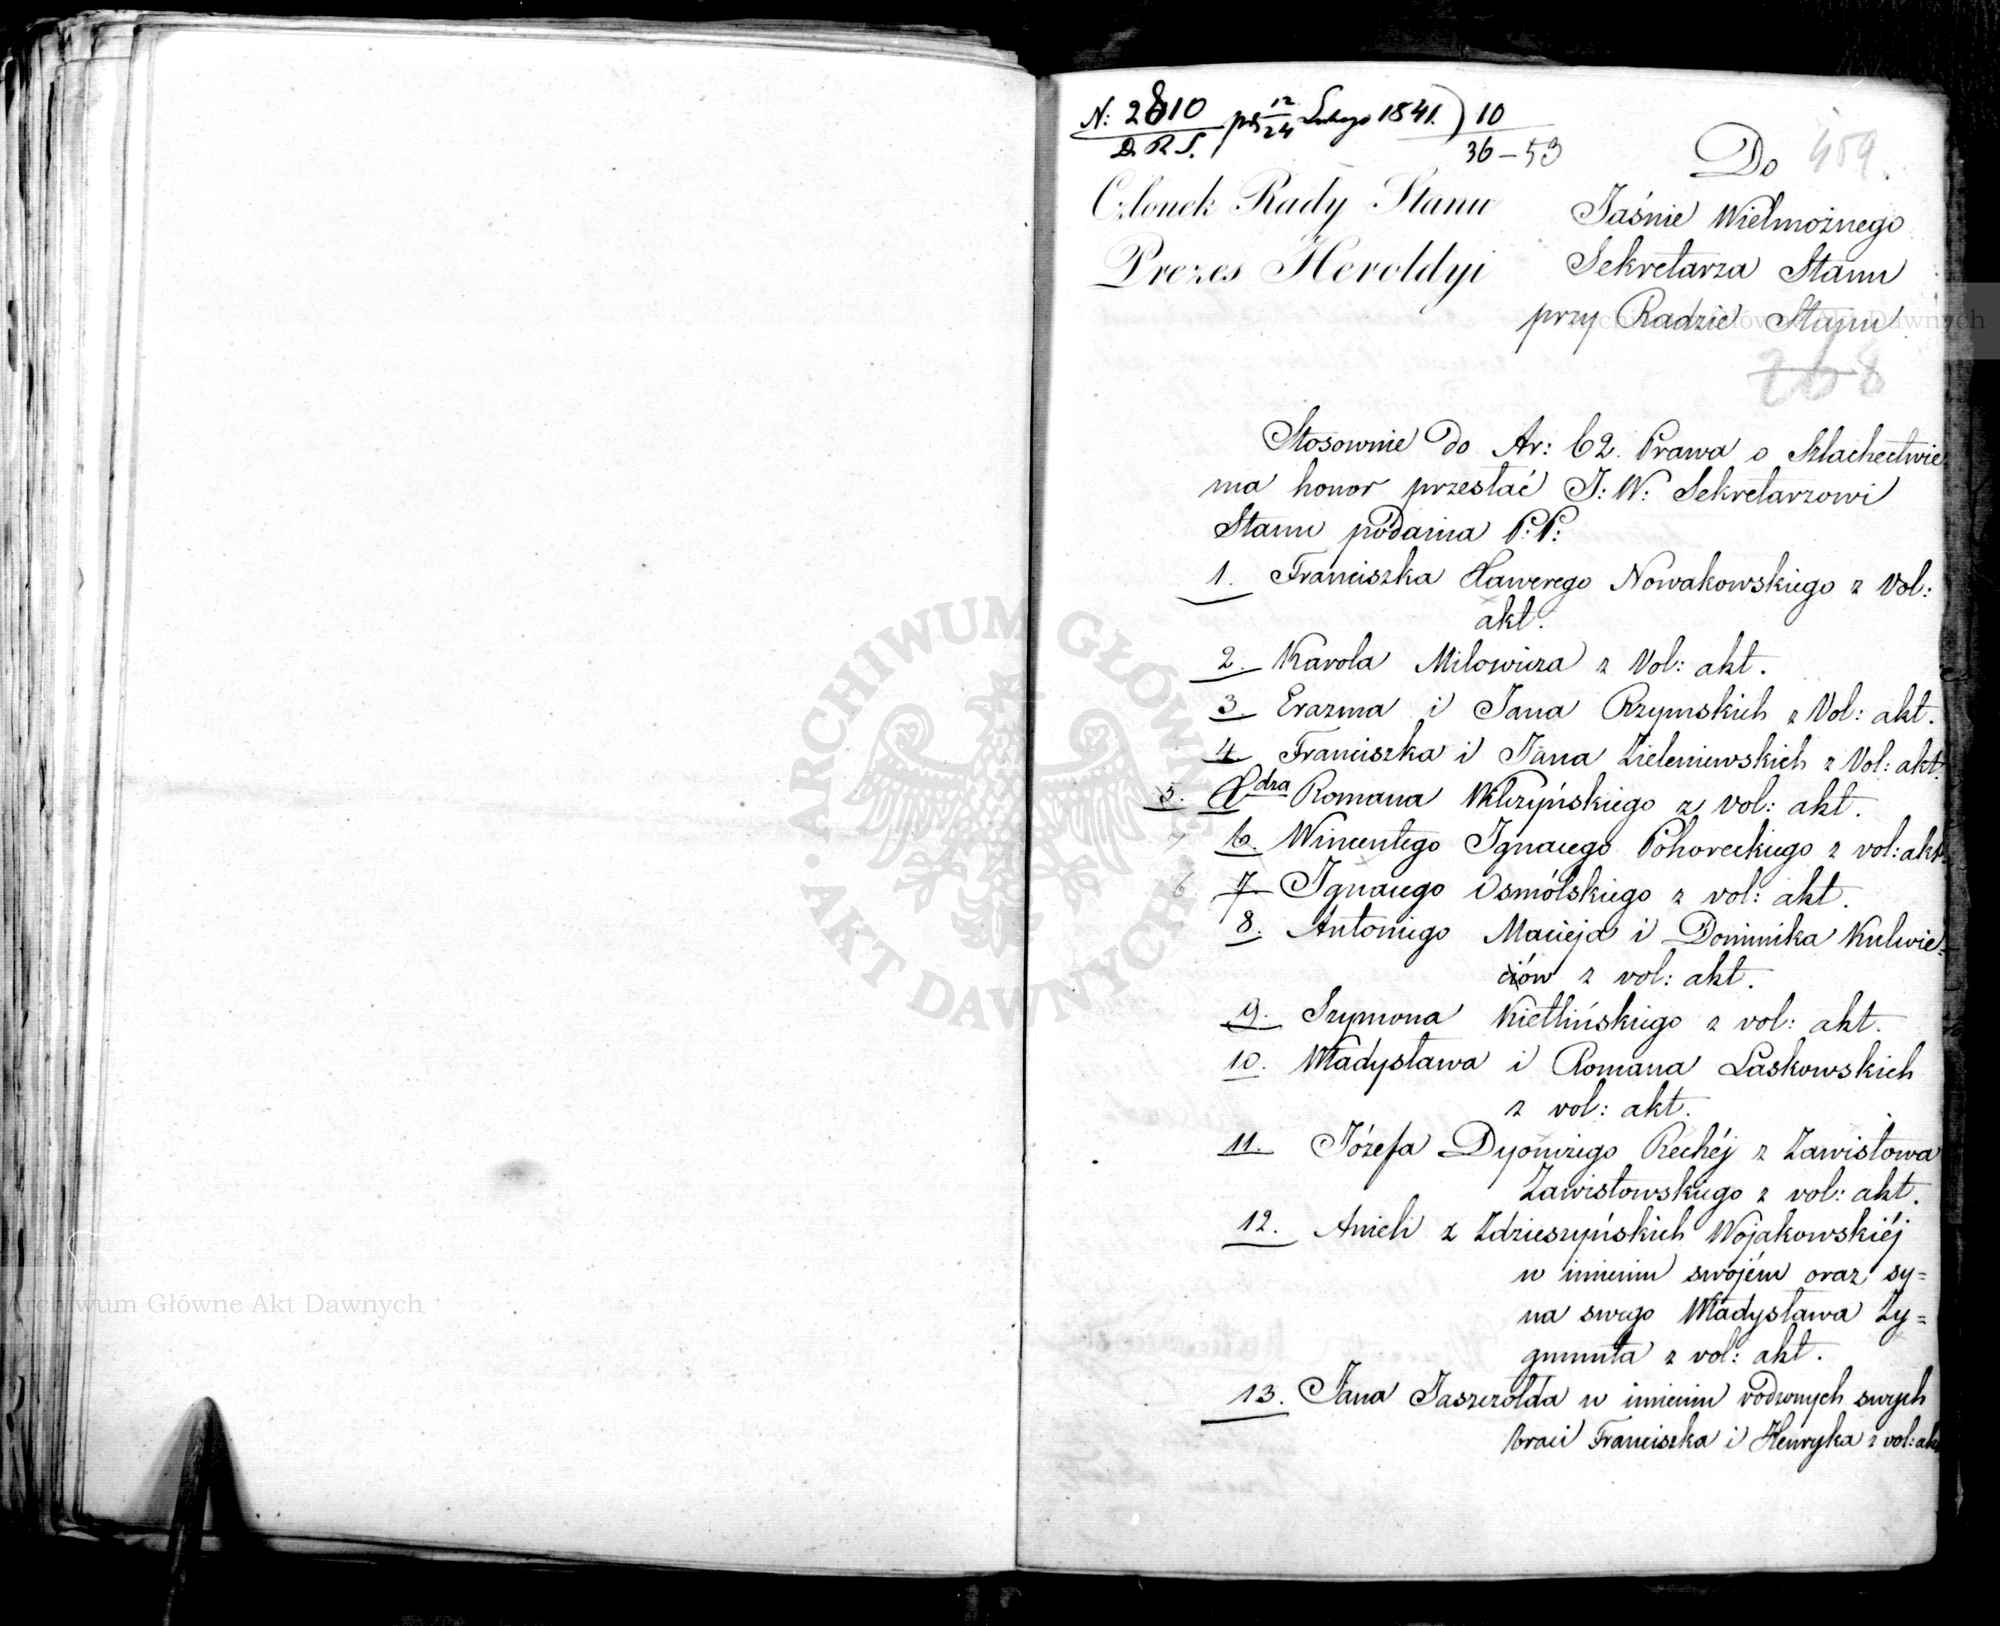 N: 2810 pr 12/24 Lutego 1841. ) 10
D. R. S. 36 – 53
Do 459.
Członek Rady Stanu
Prezes Heroldyi
Jaśnie Wielmożnego
Sekretarza Stanu
przy Radzie Stanu
268
Stosownie do Ar: 62. Prawa o Szlachectwie
ma honor przesłać J: W: Sekretarzowi
Stanu podania P: P:
1. Franciszka Xawerego Nowakowskiego z Vol:
akt.
2. Karola Milowicza z Vol: akt.
3. Erazma i Jana Rzymskich z Vol: akt.
4 Franciszka i Jana Zieleniewskich z Vol: akt.
5. Romana Wilczyńskiego z vol: akt.
7 6. Wincentego Ignacego Pohoreckiego z vol: akt
6 7 Ignacego Osmólskiego z vol: akt.
8. Antoniego Macieja i Dominika Kulwie-
ciów z vol: akt.
9. Szymona Kietlińskiego z vol: akt.
10. Władysława i Romana Laskowskich
z vol: akt.
11. Józefa Dyonizego Rechéj z Zawistowa
Zawistowskiego z vol: akt.
12. Anieli z Zdzieszyńskich Wojakowskiéj
w imieniu swojém oraz sy=
na swego Władysława Zy=
gmunta z vol: akt.
13. Jana Jaszczołda w imieniu rodzonych swych
braci Franciszka i Henryka z vol: akt
ARCHIWUM GŁÓWNE AKT DAWNYCH
Archiwum Główne Akt Dawnych
Archiwum Główne Akt Dawnych